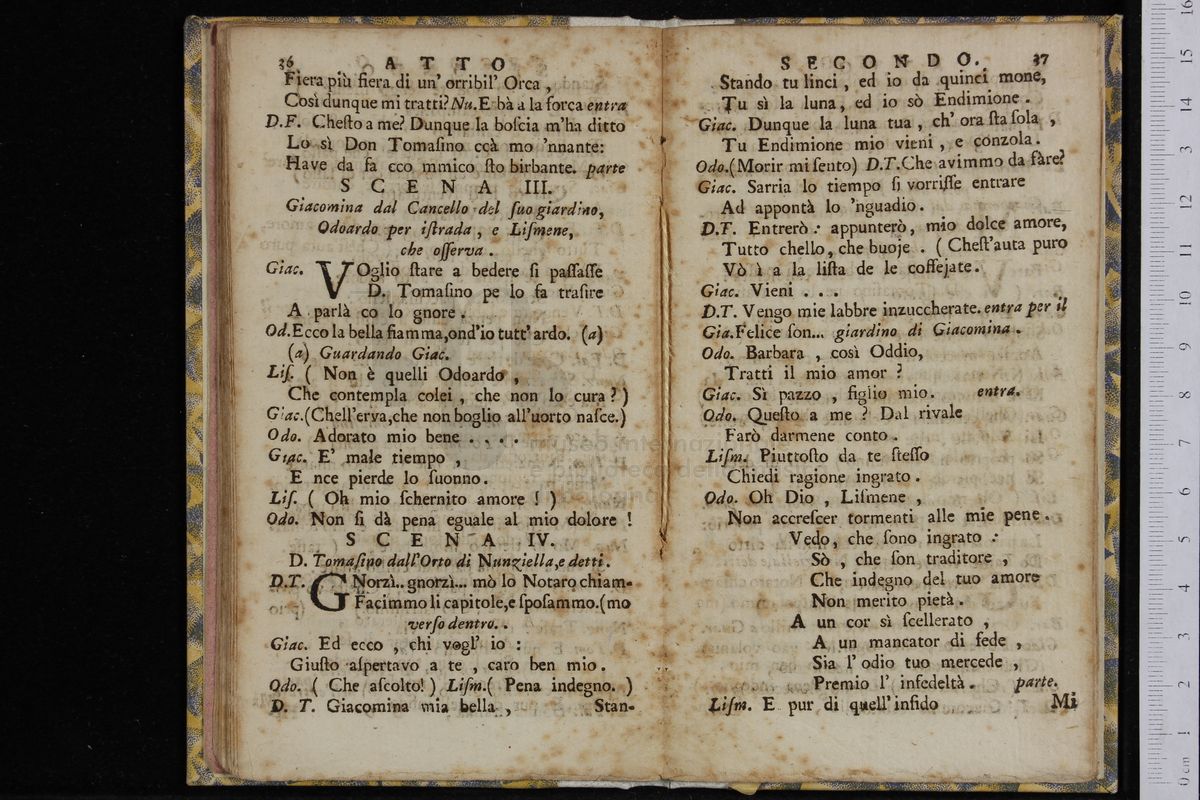 36 A T T O
Fiera più fiera di un' orribil' Orca ,
Così dunque mi tratti? Nu. E bà a la forca entra
D.F. Cheſto a me? Dunque la boſcia m'ha ditto
Lo sì Don Tomaſino ccà mo 'nnante:
Have da fa cco mmico ſto birbante. parte
S C E N A III.
Giacomina dal Cancello del ſuo giardino,
Odoardo per iſtrada , e Liſmene,
che oſſerva .
Giac. VOglio ſtare a bedere ſi paſſaſſe
D. Tomaſino pe lo fa traſire
A parlà co lo gnore .
Od. Ecco la bella fiamma, ond'io tutt' ardo. (a)
(a) Guardando Giac.
Liſ. ( Non è quelli Odoardo ,
Che contempla colei , che non lo cura ? )
Giac. (Chell'erva, che non boglio all'uorto naſce.)
Odo. Adorato mio bene . . . .
Giac. E' male tiempo ,
E nce pierde lo ſuonno.
Liſ. ( Oh mio ſchernito amore ! )
Odo. Non ſi dà pena eguale al mio dolore !
S C E N A IV.
D. Tomaſino dall'Orto di Nunziella, e detti.
D.T. GNorzì.. gnorzì... mò lo Notaro chiam-
Facimmo li capitole, e ſpoſammo. (mo
verſo dentro. .
Giac. Ed ecco , chi vogl' io :
Giuſto aſpertavo a te , caro ben mio .
Odo. ( Che aſcolto! ) Liſm. ( Pena indegno. )
D. T. Giacomina mia bella , Stan-
S E C O N D O. 37
Stando tu linci , ed io da quinci mone,
Tu sì la luna, ed io sò Endimione .
Giac. Dunque la luna tua , ch' ora ſta ſola ,
Tu Endimione mio vieni , e conzola.
Odo. (Morir mi ſento) D.T. Che avimmo da fàre?
Giac. Sarria lo tiempo ſi vorriſſe entrare
Ad appontà lo 'nguadio .
D.T. Entrerò : appunterò, mio dolce amore,
Tutto chello, che buoje . ( Cheſt'auta puro
Vò ì a la liſta de le coffejate.
Giac. Vieni . . .
D.T. Vengo mie labbre inzuccherate. entra per il
Gia. Felice ſon... giardino di Giacomina .
Odo. Barbara , così Oddio,
Tratti il mio amor ?
Giac. Sì pazzo , figlio mio. entra.
Odo. Queſto a me ? Dal rivale
Farò darmene conto .
Liſm. Piuttoſto da te ſteſſo
Chiedi ragione ingrato .
Odo. Oh Dio , Liſmene ,
Non accreſcer tormenti alle mie pene .
Vedo, che ſono ingrato :
Sò , che ſon traditore ,
Che indegno del tuo amore
Non merito pietà .
A un cor sì ſcellerato ,
A un mancator di fede ,
Sia l' odio tuo mercede ,
Premio l' infedeltà . parte.
Liſm. E pur di quell' infido Mi